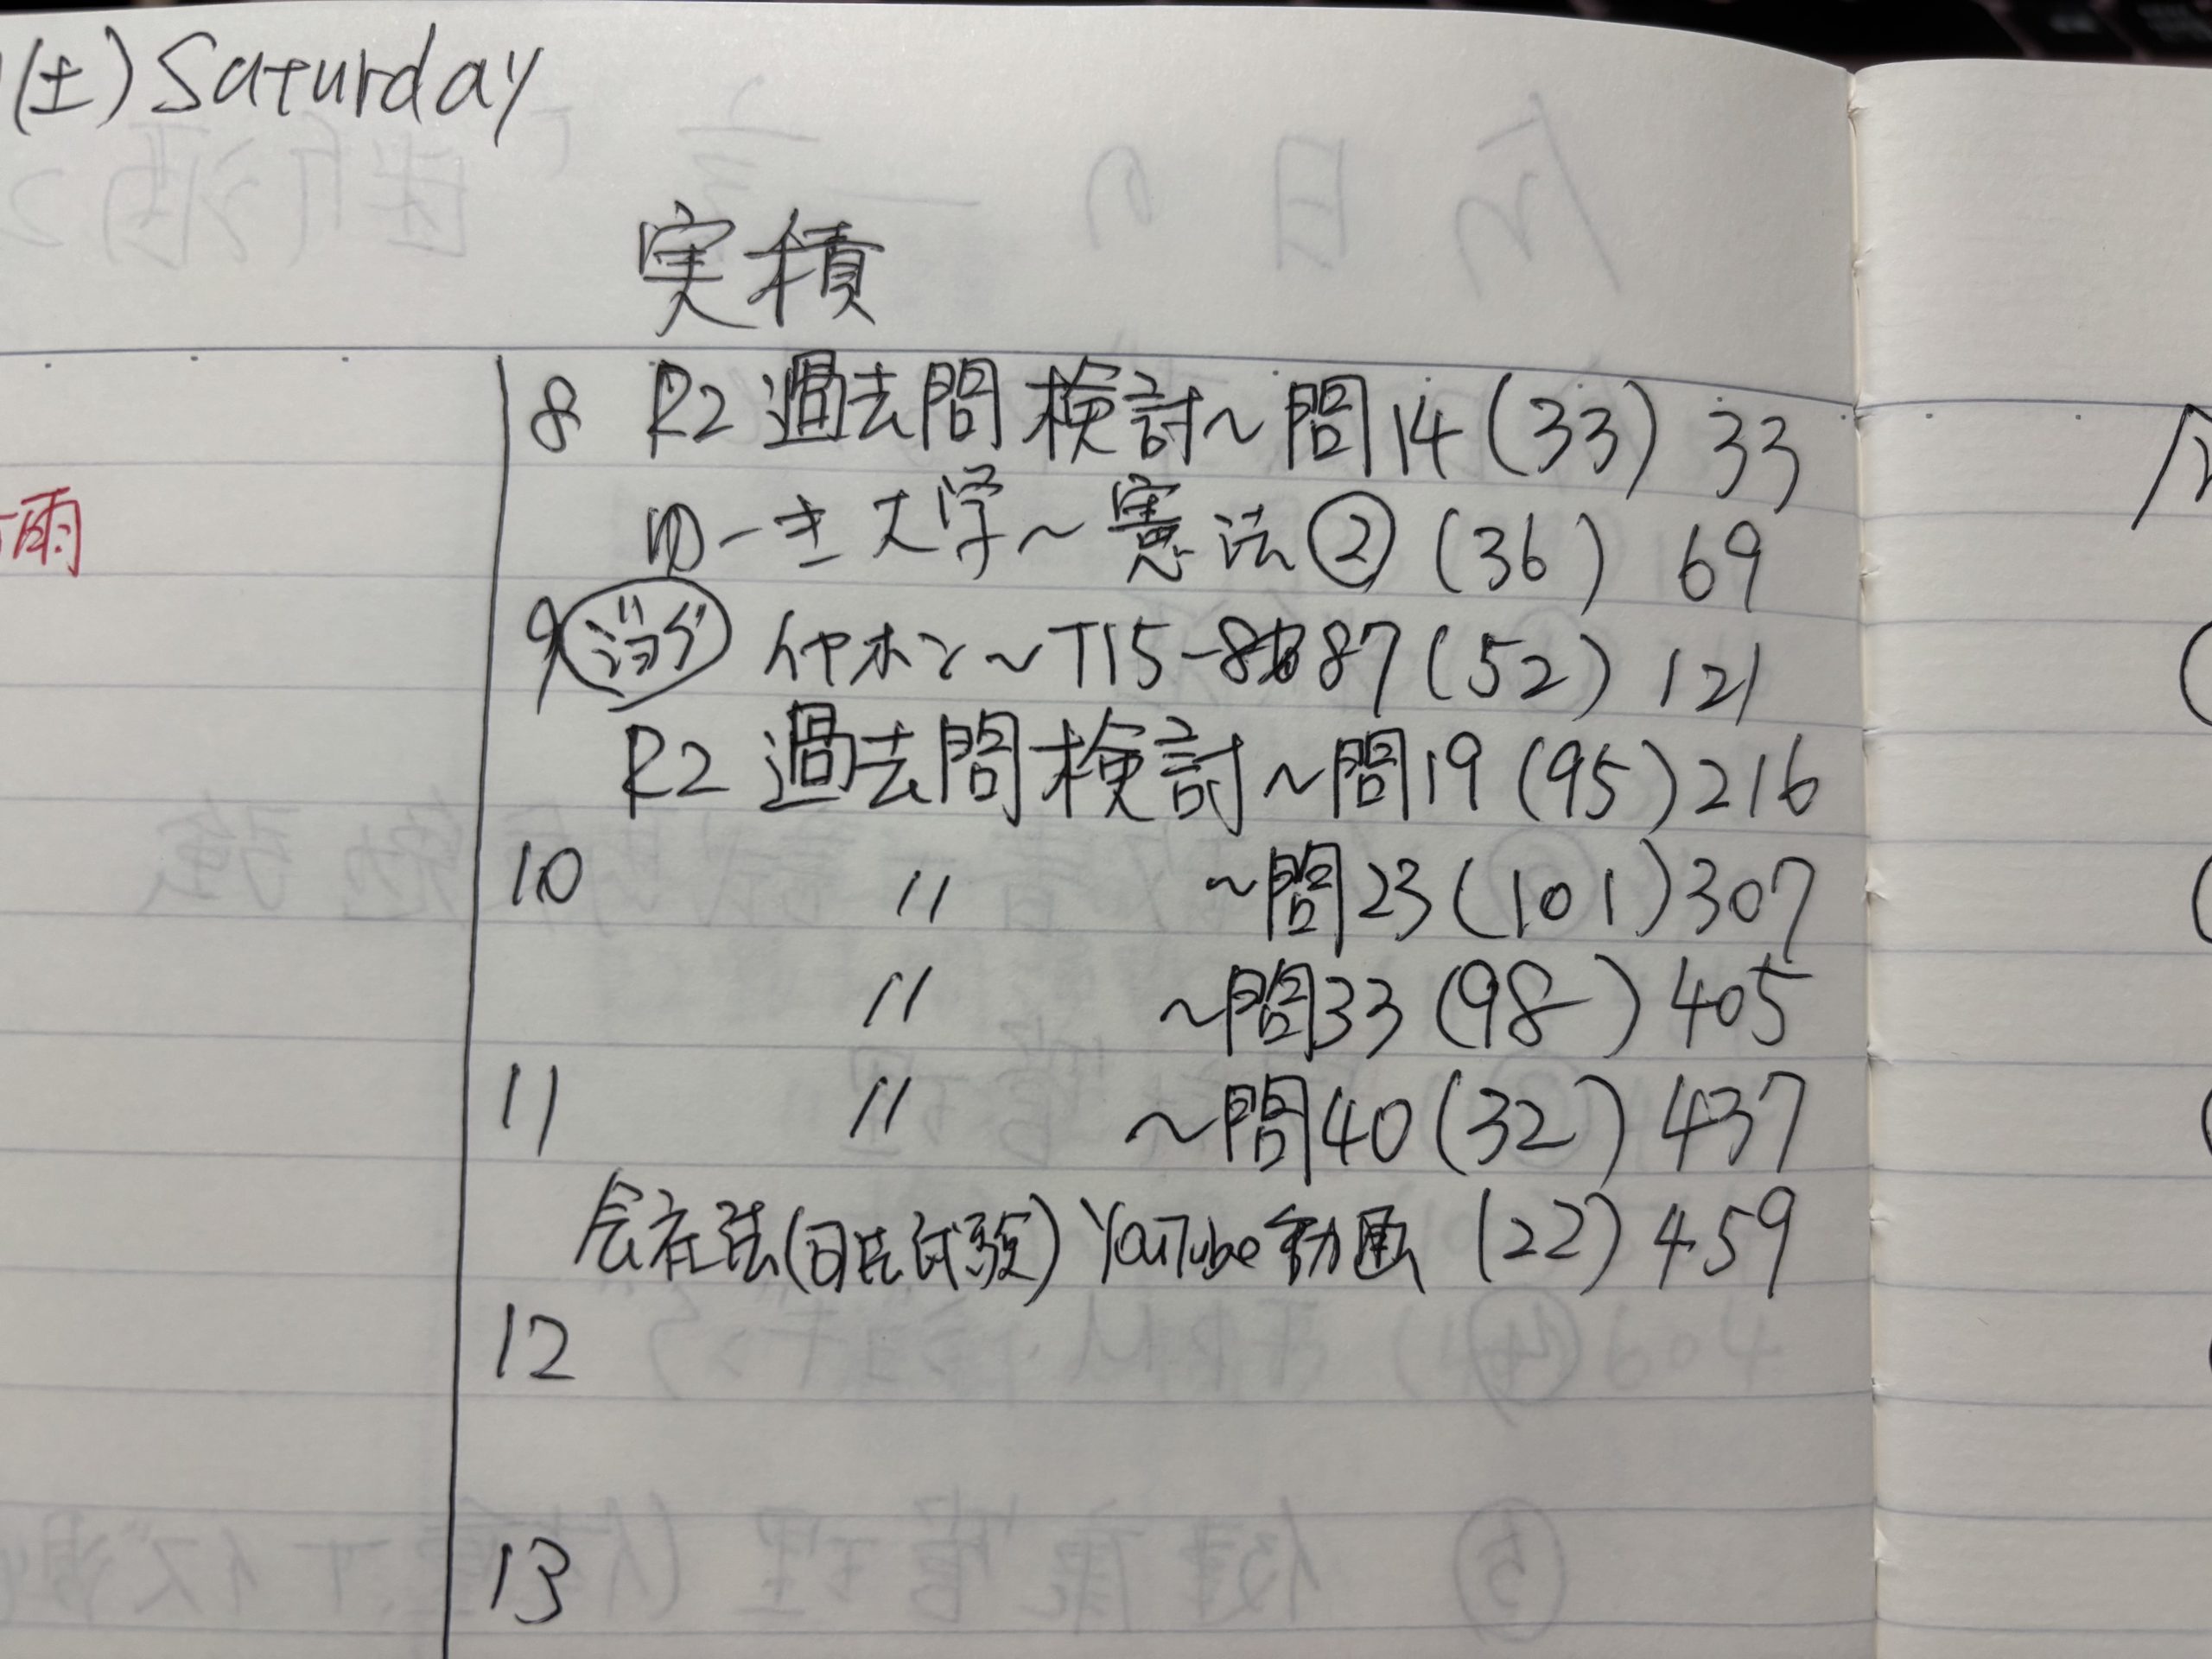 (土) Saturday
実積
雨
8 R2 過去問 検討〜問14 (33) 33
ゆーき大学〜憲法② (36) 69
9 ジョグ イヤホン〜T15-87 (52) 121
R2 過去問検討〜問19 (95) 216
10 〃 〜問23 (101) 307
〃 〜問33 (98) 405
11 〃 〜問40 (32) 437
会社法(司法試験) YouTube動画 (22) 459
12
13